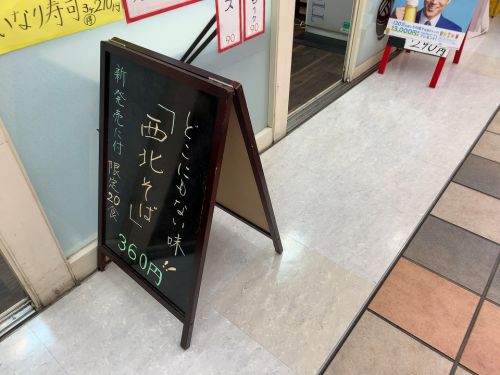 いなり寿司 3ヶ210円
どこにもない味
「西北そば」
新発売に付 限定20食
360円!!
90
90
3,000円
290円